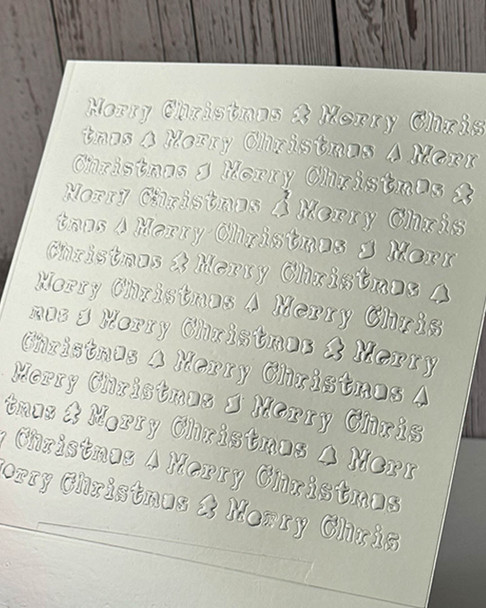 Merry Christmas Merry Chris
tmas Merry Christmas Merr
Christmas Merry Christmas
Merry Christmas Merry Chris
tmas Merry Christmas Merr
Christmas Merry Christmas
Merry Christmas Merry Chris
mas Merry Christmas Merry
Christmas Merry Christmas
Merry Christmas Merry Chris
tmas Merry Christmas Merr
y Christmas Merry Christmas
Merry Christmas Merry Chris